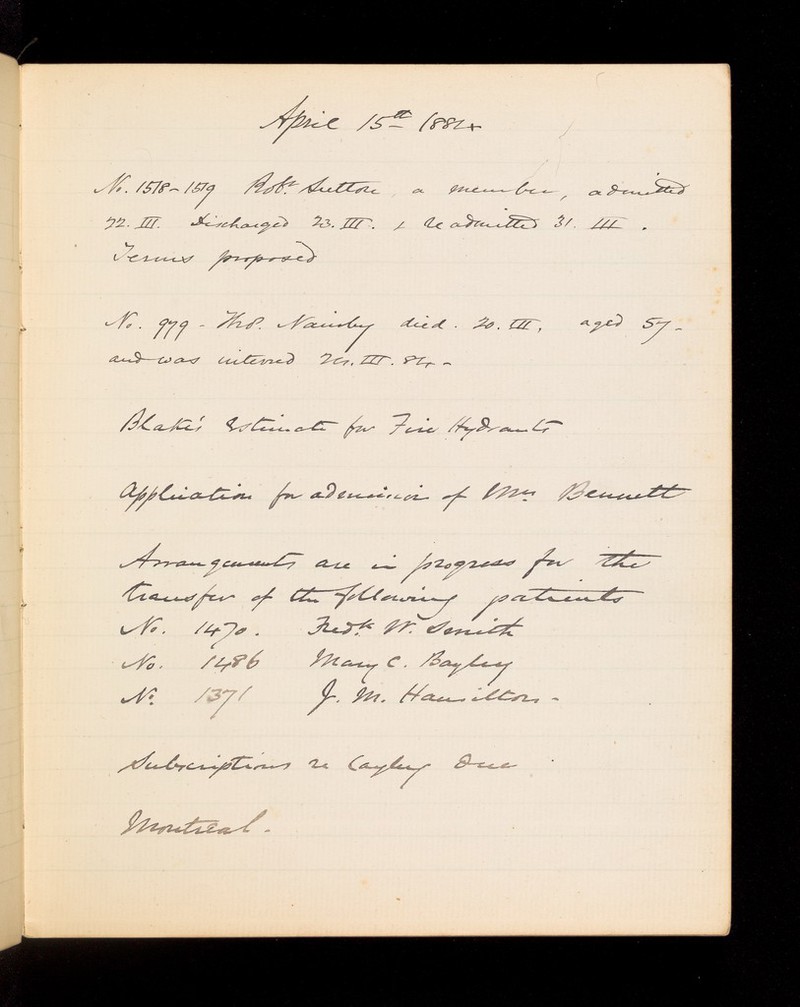 April 15th 1884
No. 1518-1519 Robt. Sutton, a member, admitted
22. III. Discharged 23. III. & readmitted 31. III.
Terms proposed
No. 979 - Thos. Nainby died. 20. III. aged 57-
and was interred 24. III. 84 -
Blake's Estimate for Fire Hydrants
Application for admission of Mrs Bennett
Arrangements are in progress for the
transfer of the following patients
No. 1470. Fredk W. Smith
No. 1486 Mary C. Bayley
No. 1371 J. M. Hamilton -
Subscriptions re Cayley due
Montreal -